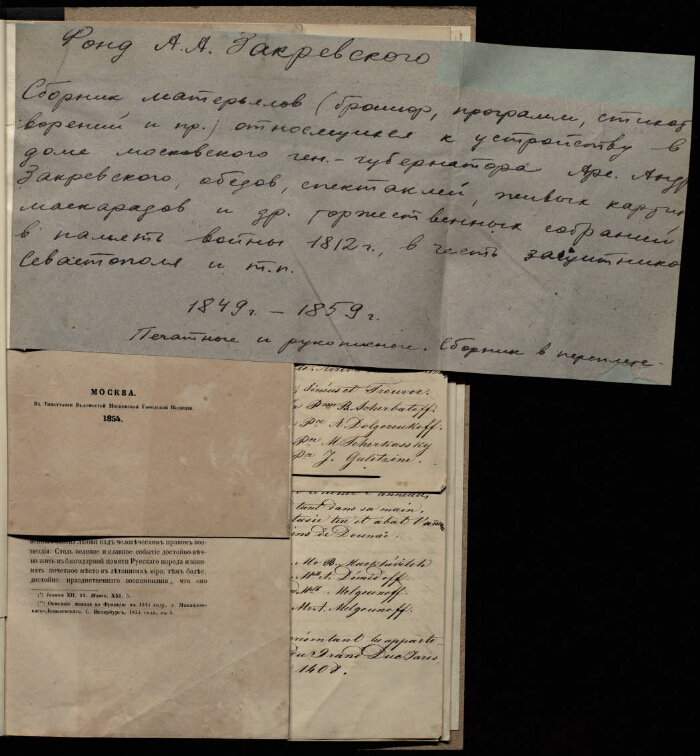 Фонд А.А. Закревского
Сборник матерьялов (брошюр, программ, стихот
ворений и пр.) относящихся к устройству в
доме московского ген.-губернатора Арс. Андр
Закревского, обедов, спектаклей, живых картин
маскарадов и др. торжественных собраний
в память войны 1812 г., в честь защитнико
Севастополя и т.п.
1849 г. – 1859 г.
Печатные и рукописные. Сборник в переплете-
МОСКВА.
Въ Типографіи Вѣдомостей Московской Городской Полиціи.
1854.
Sinéus et Trouvor.
Pce B. Scherbatoff.
Pce A. Dolgoroukoff.
Pce M. Tcherkassky
Pce J. Galitzine.
tant dans sa main,
tue et abat l'
ins de
Mr B.
A. Démidoff
Melgounoff
Mr A. Melgounoff
représentant les apparte-
du Grand Duc
1407.
надъ человѣческимъ
звѣздія. Столь великое и славное событіе достойно вѣч-
но жить въ благодарной памяти Рускаго народа и зани-
мать почетное мѣсто въ лѣтописяхъ міра; тѣмъ болѣе,
достойно празднственнаго воспоминанія, что оно
(*) Іоанна XII. 44. Матѳ. XXI. 5.
(**) Описаніе похода во Францію въ 1814 году, г. Михайлов-
скаго-Данилевскаго, С. Петербургъ. 1854 года,